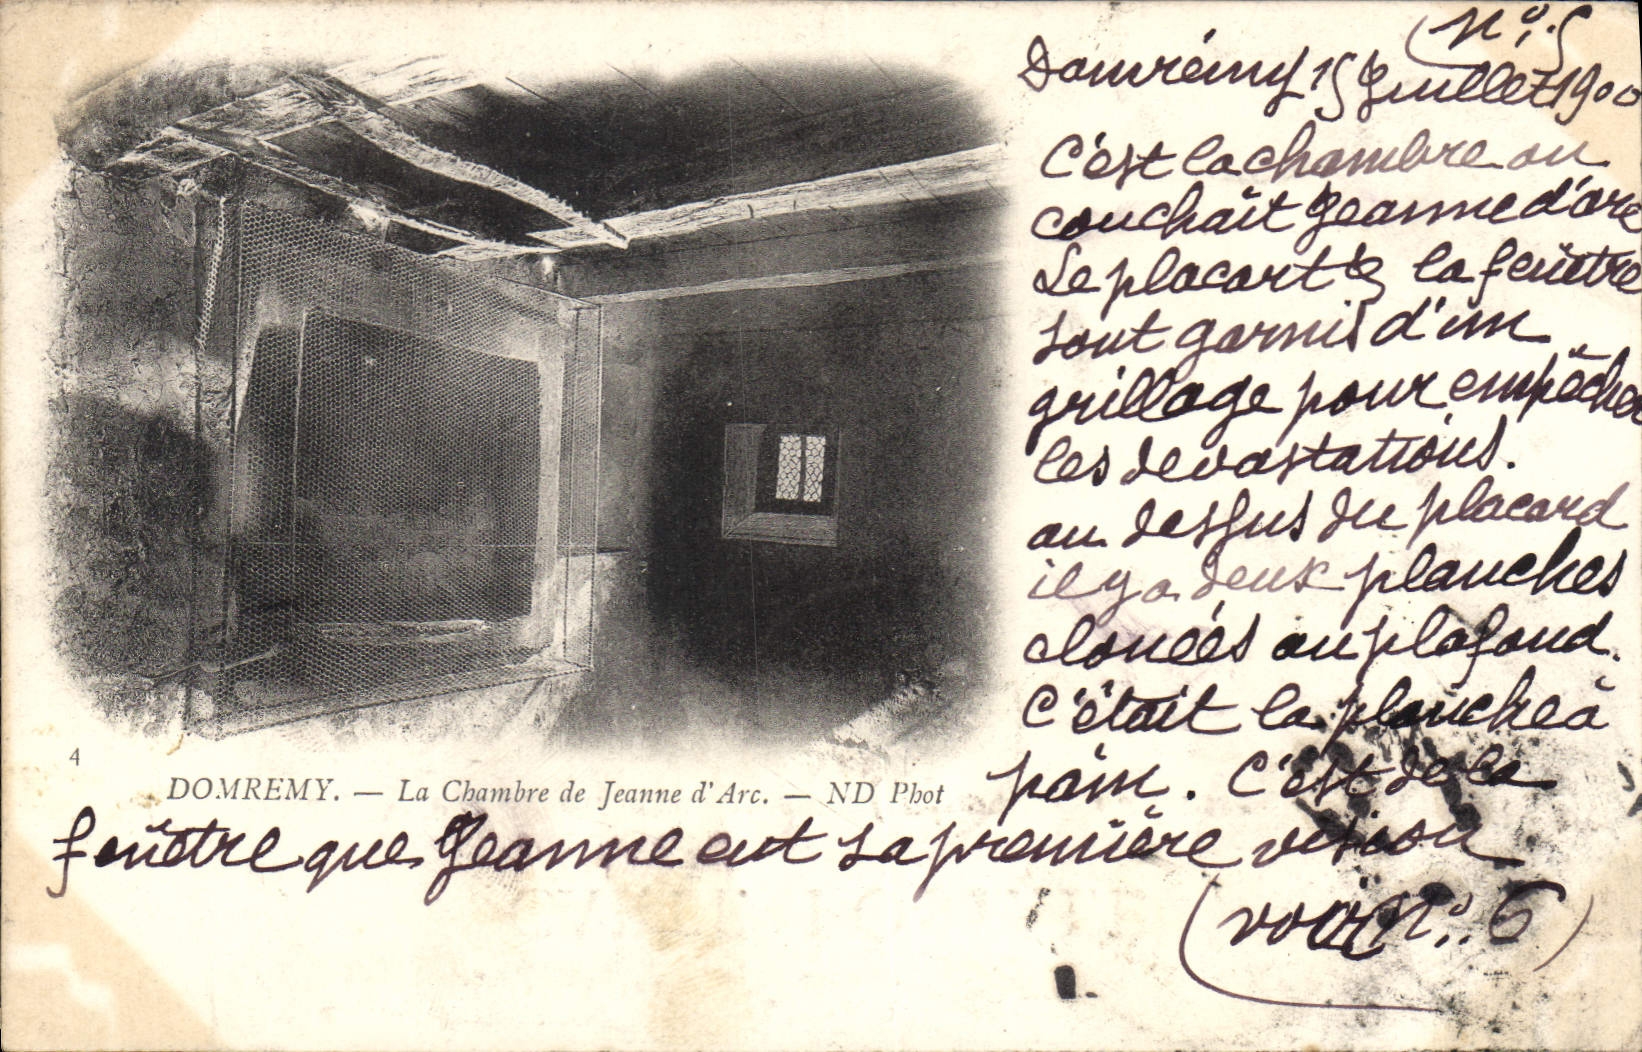 (N°. 5
Domrémy 15 Juillet 1900
C'est la chambre ou
couchait Jeanne d'arc
Le placart & la fenêtre
sont garnis d'un
grillage pour empêcher
les devastations.
au dessus du placard
il y a deux planches
clouées au plafond.
C'était la planche à
pain. C'est de la
4
DOMREMY. — La Chambre de Jeanne d'Arc. — ND Phot
fenêtre que Jeanne eut sa première vision
(voir N°. 6)